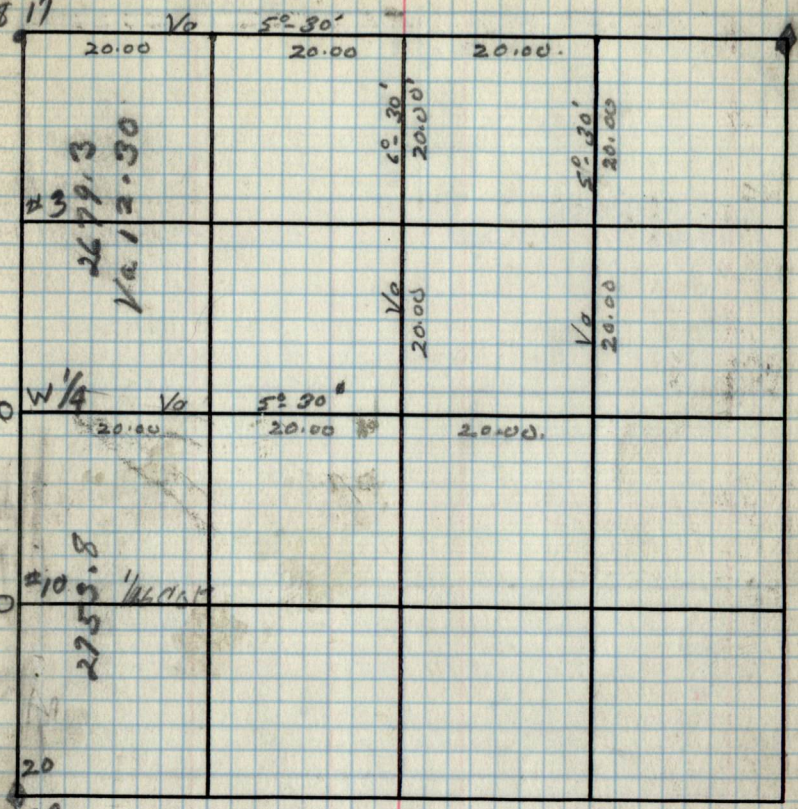 8 17
Va 5°-30'
20.00 20.00 20.00.
6°-30'
20.00'
5°-30'
20.00
#3
2679.3
Va 12.30
Va
20.00
Va
20.00
W 1/4 Va 5°-30'
20.00 20.00 20.00.
#10
2753.8
20